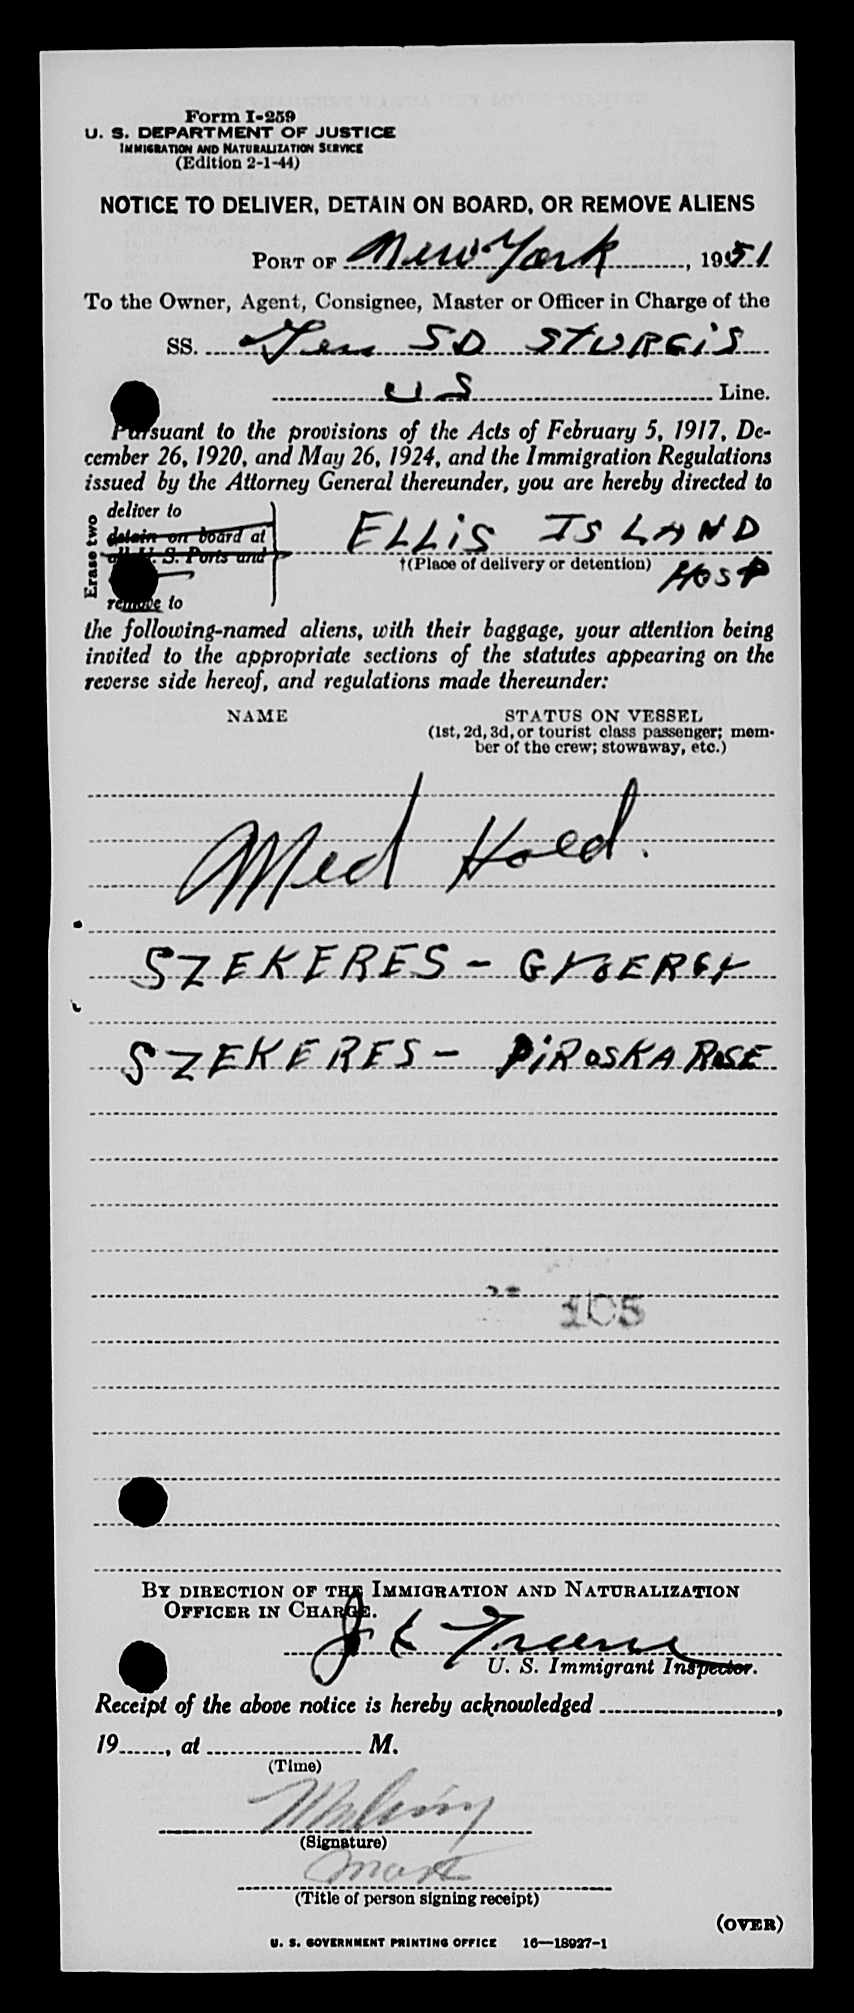 Form I-259
U. S. DEPARTMENT OF JUSTICE
IMMIGRATION AND NATURALIZATION SERVICE
(Edition 2-1-44)
NOTICE TO DELIVER, DETAIN ON BOARD, OR REMOVE ALIENS
PORT OF New York, 1951
To the Owner, Agent, Consignee, Master or Officer in Charge of the
SS. Gen SD STURGIS
US Line.
Pursuant to the provisions of the Acts of February 5, 1917, De-
cember 26, 1920, and May 26, 1924, and the Immigration Regulations
issued by the Attorney General thereunder, you are hereby directed to
Erase two
deliver to
detain on board at
all U. S. Ports and
remove to
ELLIS ISLAND
†(Place of delivery or detention) HOSP
the following-named aliens, with their baggage, your attention being
invited to the appropriate sections of the statutes appearing on the
reverse side hereof, and regulations made thereunder:
NAME STATUS ON VESSEL
(1st, 2d, 3d, or tourist class passenger; mem-
ber of the crew; stowaway, etc.)
Med Hold.
SZEKERES - GYOERGY
SZEKERES - PIROSKA ROSE
105
BY DIRECTION OF THE IMMIGRATION AND NATURALIZATION
OFFICER IN CHARGE.
U. S. Immigrant Inspector.
Receipt of the above notice is hereby acknowledged ,
19 , at M.
(Time)
(Signature)
(Title of person signing receipt)
(OVER)
U. S. GOVERNMENT PRINTING OFFICE 16—18927-1